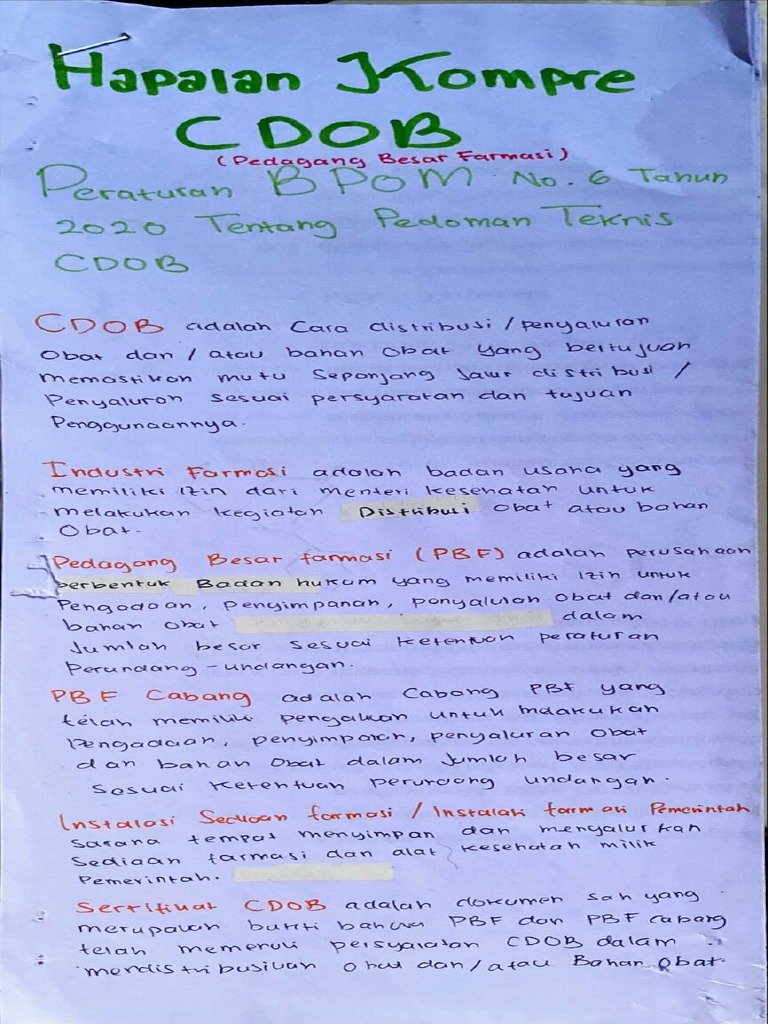 Hapalan Kompre
CDOB
(Pedagang Besar Farmasi)
Peraturan BPOM No. 6 Tahun
2020 Tentang Pedoman Teknis
CDOB
CDOB adalah Cara distribusi / penyaluran
Obat dan / atau bahan Obat yang bertujuan
memastikan mutu Sepanjang Jalur distribusi /
Penyaluran sesuai persyaratan dan tujuan
Penggunaannya.
Industri Farmasi adalah badan usaha yang
memiliki izin dari menteri kesehatan untuk
melakukan kegiatan Distribusi obat atau bahan
Obat.
Pedagang Besar farmasi (PBF) adalah perusahaan
berbentuk Badan hukum yang memiliki izin untuk
Pengadaan, penyimpanan, penyaluran obat dan/atau
bahan obat dalam
Jumlah besar sesuai ketentuan peraturan
Perundang-undangan.
PBF Cabang adalah Cabang PBF yang
telah memiliki pengakuan untuk melakukan
Pengadaan, penyimpanan, penyaluran obat
dan bahan obat dalam Jumlah besar
Sesuai ketentuan perundang undangan.
Instalasi Sediaan farmasi / Instalasi farmasi Pemerintah
Sarana tempat menyimpan dan menyalurkan
Sediaan farmasi dan alat kesehatan milik
Pemerintah.
Sertifikat CDOB adalah dokumen sah yang
merupakan bukti bahwa PBF dan PBF cabang
telah memenuhi persyaratan CDOB dalam
mendistribusikan obat dan/atau Bahan Obat.